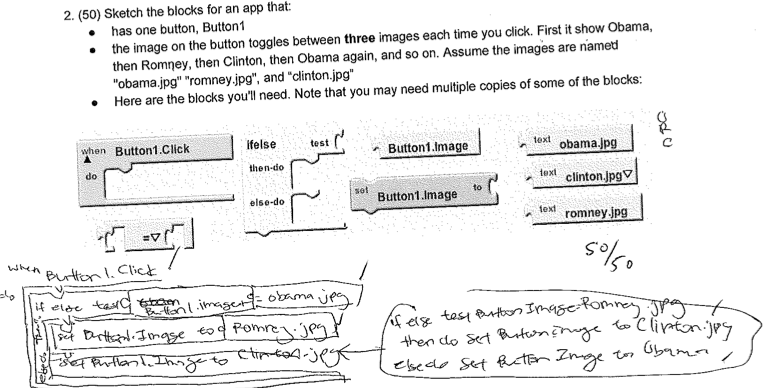 2. (50) Sketch the blocks for an app that:
• has one button, Button1
• the image on the button toggles between three images each time you click. First it show Obama,
then Romney, then Clinton, then Obama again, and so on. Assume the images are named
"obama.jpg" "romney.jpg", and "clinton.jpg"
• Here are the blocks you'll need. Note that you may need multiple copies of some of the blocks:
when Button1.Click
do
ifelse test
then-do
else-do
Button1.Image
set Button1.Image to
text obama.jpg
text clinton.jpg
text romney.jpg
=
O
R
C
50/50
when Button1.Click
do
if else test Button1.image = obama.jpg
set Button1.Image to Romney.jpg
set Button1.Image to Clinton.jpg
if else test Button Image = Romney.jpg
then do set Button image to Clinton.jpg
else do set Button Image to Obama